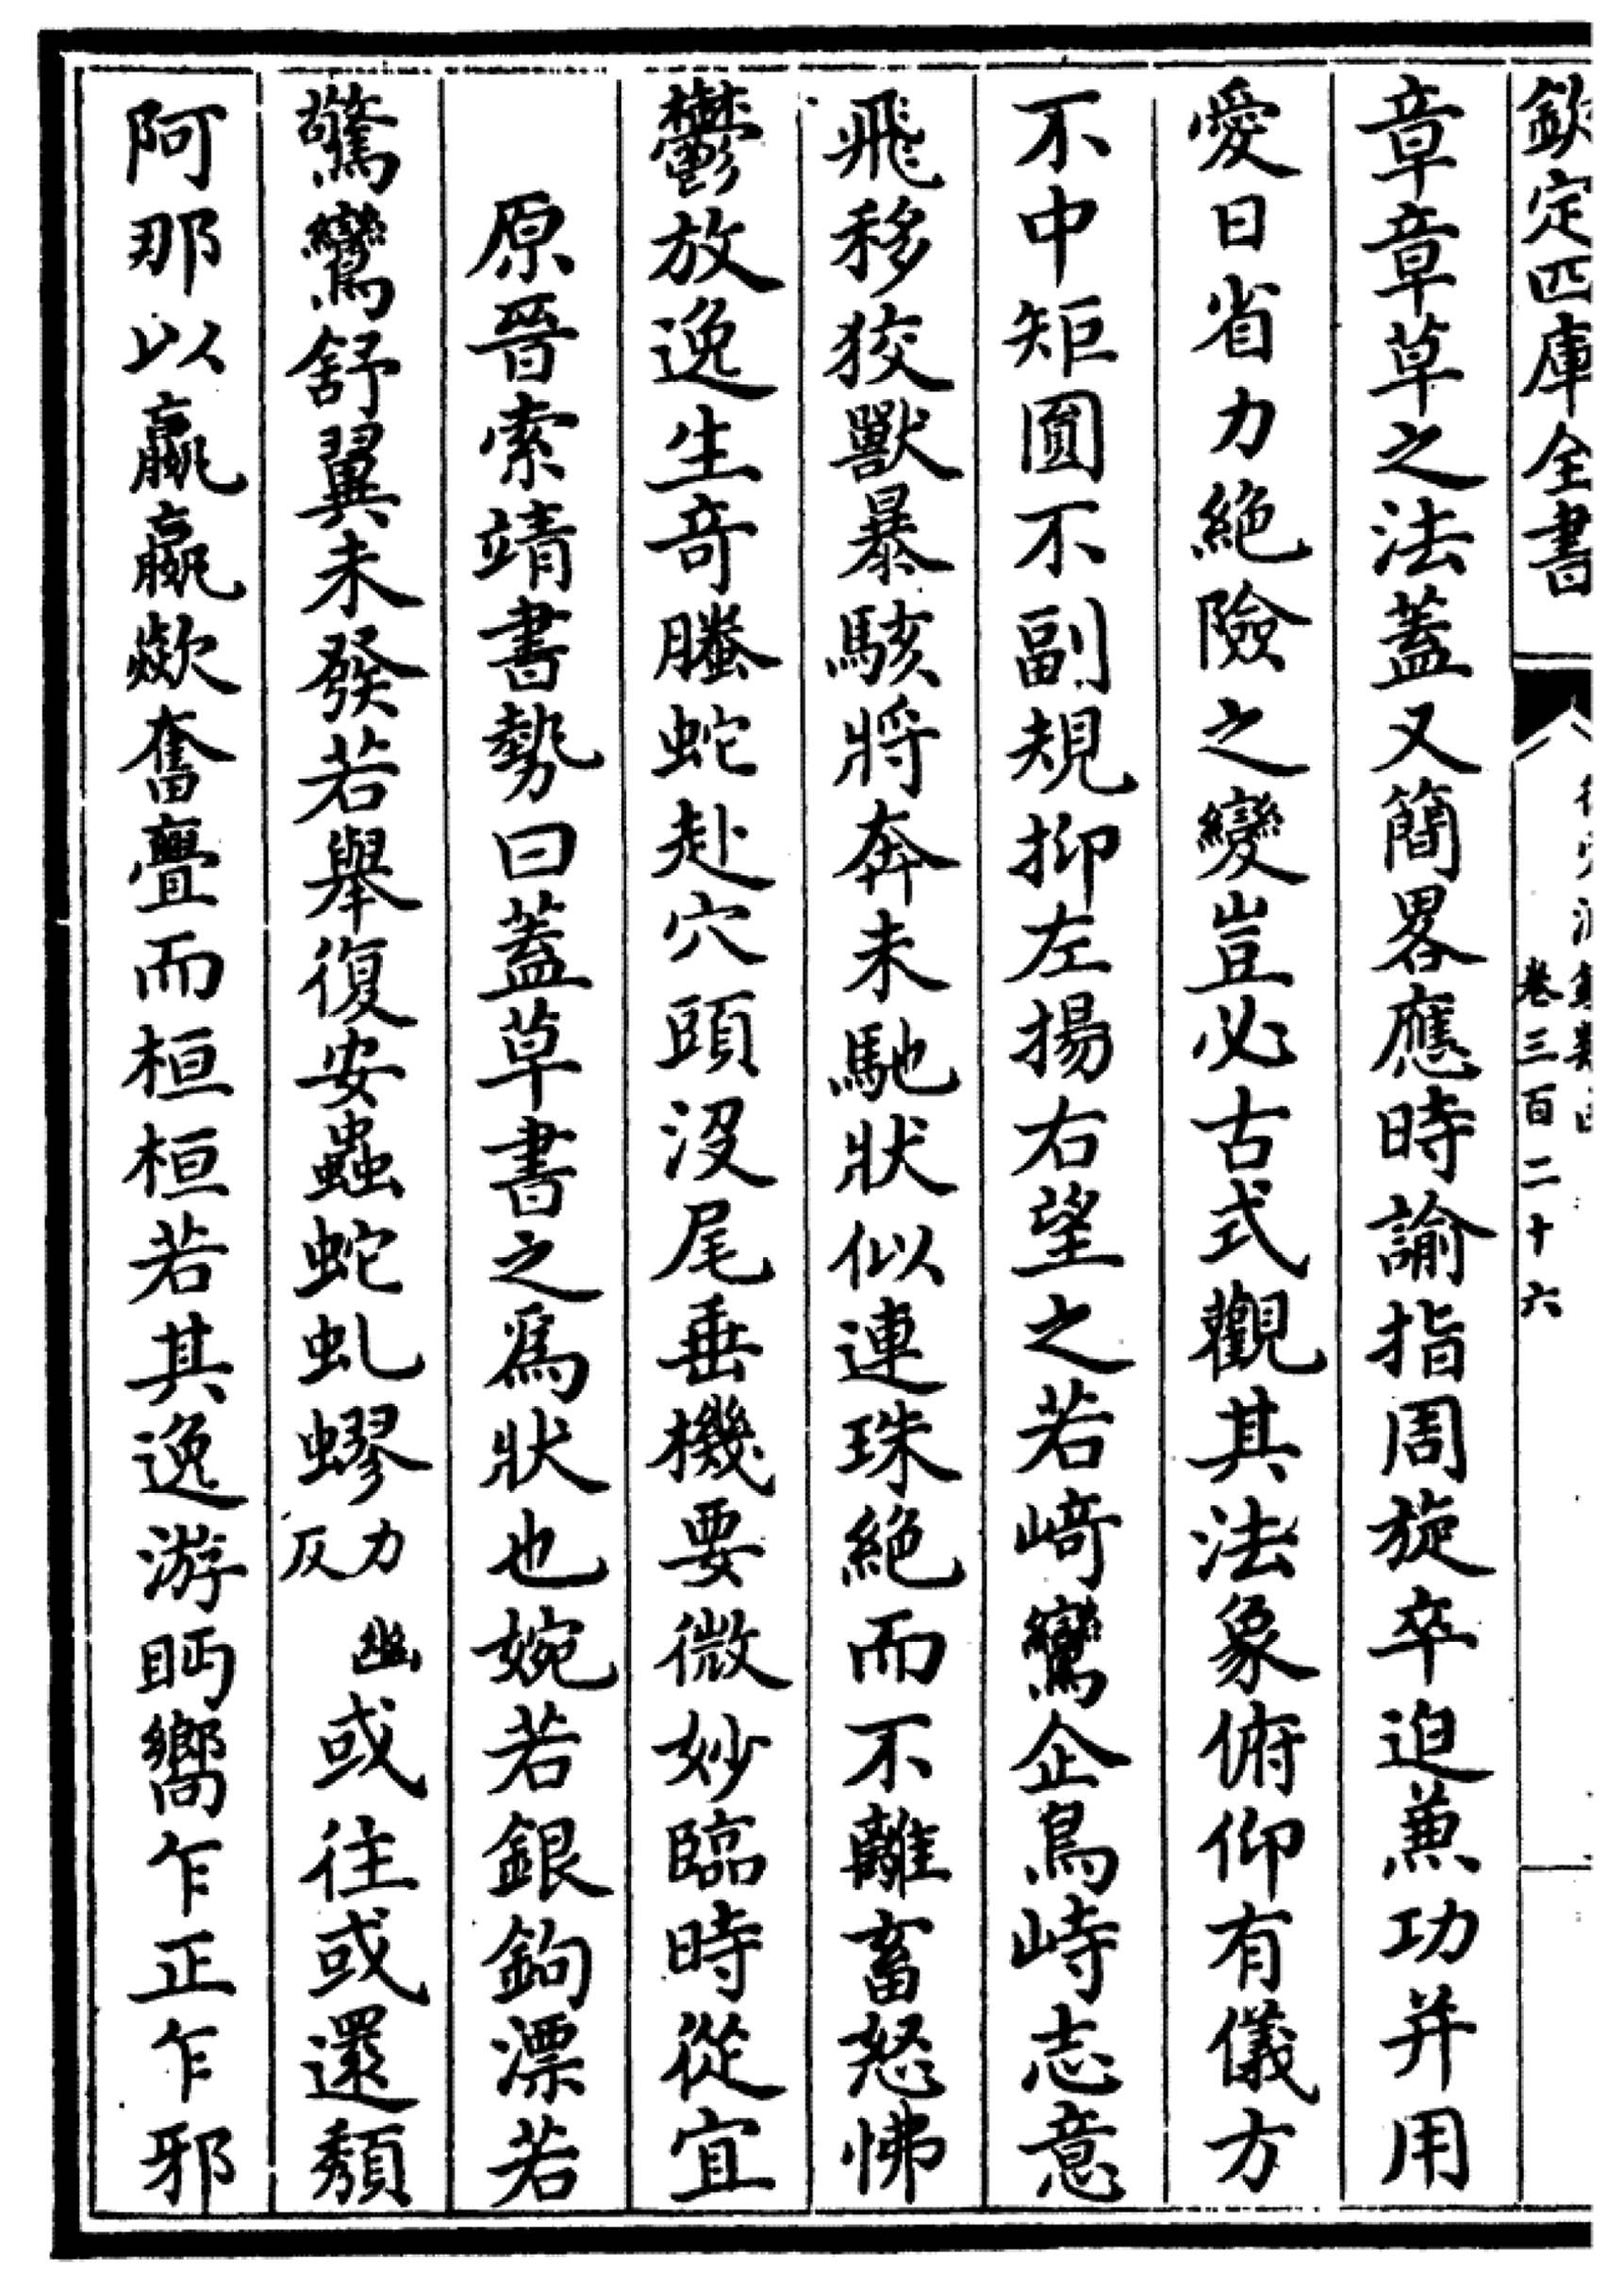 欽定四庫全書
卷三百二十六
章章草之法蓋又簡畧應時諭指周旋卒迫兼功并用
愛日省力絕險之變豈必古式觀其法象俯仰有儀方
不中矩圓不副規抑左揚右望之若崎鸞企鳥峙志意
飛移狡獸暴駭將奔未馳狀似連珠絕而不離畜怒怫
鬱放逸生奇騰蛇赴穴頭沒尾垂機要微妙臨時從宜
原晉索靖書勢曰蓋草書之為狀也婉若銀鉤漂若
驚鸞舒翼未發若舉復安蟲蛇虬蟉力幽反或往或還頹
阿那以羸羸歘奮亹而桓桓若其逸游眄嚮乍正乍邪